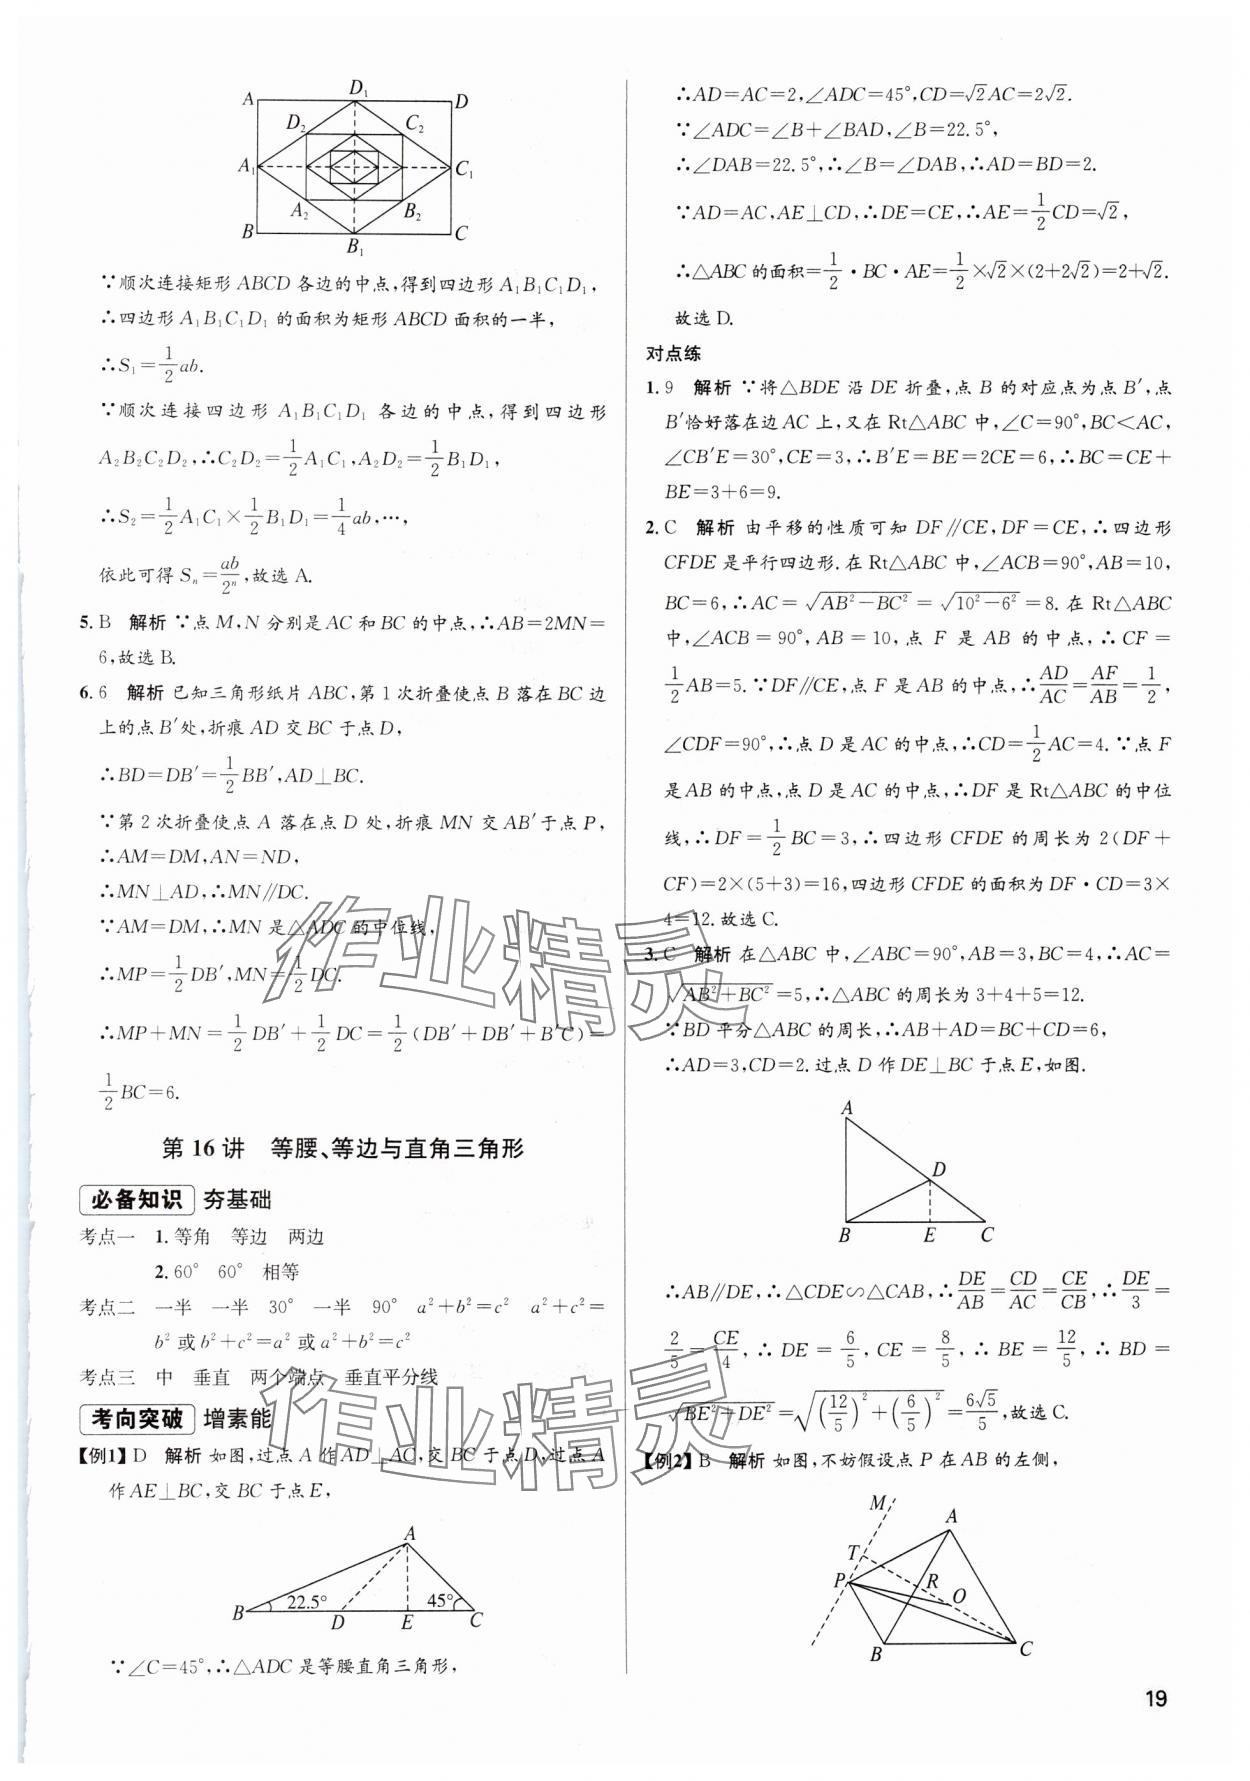 A D₁ D
D₂ C₂
A₁ C₁
A₂ B₂
B B₁ C
∵顺次连接矩形 ABCD 各边的中点,得到四边形 A₁B₁C₁D₁,
∴四边形 A₁B₁C₁D₁ 的面积为矩形 ABCD 面积的一半,
∴S₁=1/2ab.
∵顺次连接四边形 A₁B₁C₁D₁ 各边的中点,得到四边形
A₂B₂C₂D₂,∴C₂D₂=1/2A₁C₁,A₂D₂=1/2B₁D₁,
∴S₂=1/2A₁C₁×1/2B₁D₁=1/4ab,…,
依此可得 Sₙ=ab/2ⁿ,故选 A.
5. B 解析 ∵点 M,N 分别是 AC 和 BC 的中点,∴AB=2MN=
6,故选 B.
6. 6 解析 已知三角形纸片 ABC,第 1 次折叠使点 B 落在 BC 边
上的点 B′处,折痕 AD 交 BC 于点 D,
∴BD=DB′=1/2BB′,AD⊥BC.
∵第 2 次折叠使点 A 落在点 D 处,折痕 MN 交 AB′于点 P,
∴AM=DM,AN=ND,
∴MN⊥AD,∴MN∥DC.
∵AM=DM,∴MN 是△ADC 的中位线,
∴MP=1/2DB′,MN=1/2DC.
∴MP+MN=1/2DB′+1/2DC=1/2(DB′+DB′+B′C)=
1/2BC=6.
第 16 讲 等腰、等边与直角三角形
必备知识 夯基础
考点一 1. 等角 等边 两边
2. 60° 60° 相等
考点二 一半 一半 30° 一半 90° a²+b²=c² a²+c²=
b² 或 b²+c²=a² 或 a²+b²=c²
考点三 中 垂直 两个端点 垂直平分线
考向突破 增素能
【例1】D 解析 如图,过点 A 作 AD⊥AC,交 BC 于点 D,过点 A
作 AE⊥BC,交 BC 于点 E,
A
22.5° 45°
B D E C
∵∠C=45°,∴△ADC 是等腰直角三角形,
∴AD=AC=2,∠ADC=45°,CD=√2AC=2√2.
∵∠ADC=∠B+∠BAD,∠B=22.5°,
∴∠DAB=22.5°,∴∠B=∠DAB,∴AD=BD=2.
∵AD=AC,AE⊥CD,∴DE=CE,∴AE=1/2CD=√2,
∴△ABC 的面积=1/2·BC·AE=1/2×√2×(2+2√2)=2+√2.
故选 D.
对点练
1. 9 解析 ∵将△BDE 沿 DE 折叠,点 B 的对应点为点 B′,点
B′恰好落在边 AC 上,又在 Rt△ABC 中,∠C=90°,BC<AC,
∠CB′E=30°,CE=3,∴B′E=BE=2CE=6,∴BC=CE+
BE=3+6=9.
2. C 解析 由平移的性质可知 DF∥CE,DF=CE,∴四边形
CFDE 是平行四边形.在 Rt△ABC 中,∠ACB=90°,AB=10,
BC=6,∴AC=√(AB²−BC²)=√(10²−6²)=8. 在 Rt△ABC
中,∠ACB=90°,AB=10,点 F 是 AB 的中点,∴CF=
1/2AB=5.∵DF∥CE,点 F 是 AB 的中点,∴AD/AC=AF/AB=1/2,
∠CDF=90°,∴点 D 是 AC 的中点,∴CD=1/2AC=4.∵点 F
是 AB 的中点,点 D 是 AC 的中点,∴DF 是 Rt△ABC 的中位
线,∴DF=1/2BC=3,∴四边形 CFDE 的周长为 2(DF+
CF)=2×(5+3)=16,四边形 CFDE 的面积为 DF·CD=3×
4=12.故选 C.
3. C 解析 在△ABC 中,∠ABC=90°,AB=3,BC=4,∴AC=
√(AB²+BC²)=5,∴△ABC 的周长为 3+4+5=12.
∵BD 平分△ABC 的周长,∴AB+AD=BC+CD=6,
∴AD=3,CD=2.过点 D 作 DE⊥BC 于点 E,如图.
A
D
B E C
∴AB∥DE,∴△CDE∽△CAB,∴DE/AB=CD/AC=CE/CB,∴DE/3=
2/5=CE/4,∴DE=6/5,CE=8/5,∴BE=12/5,∴BD=
√(BE²+DE²)=√((12/5)²+(6/5)²)=6√5/5,故选 C.
【例2】B 解析 如图,不妨假设点 P 在 AB 的左侧,
M A
T
P R O
B C
作业精灵
作业精灵
19